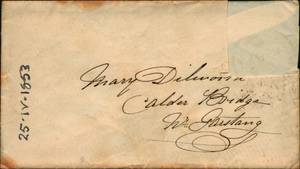 Mary Dilworth
Calder Bridge
Nr Garstang
25·IV·1853